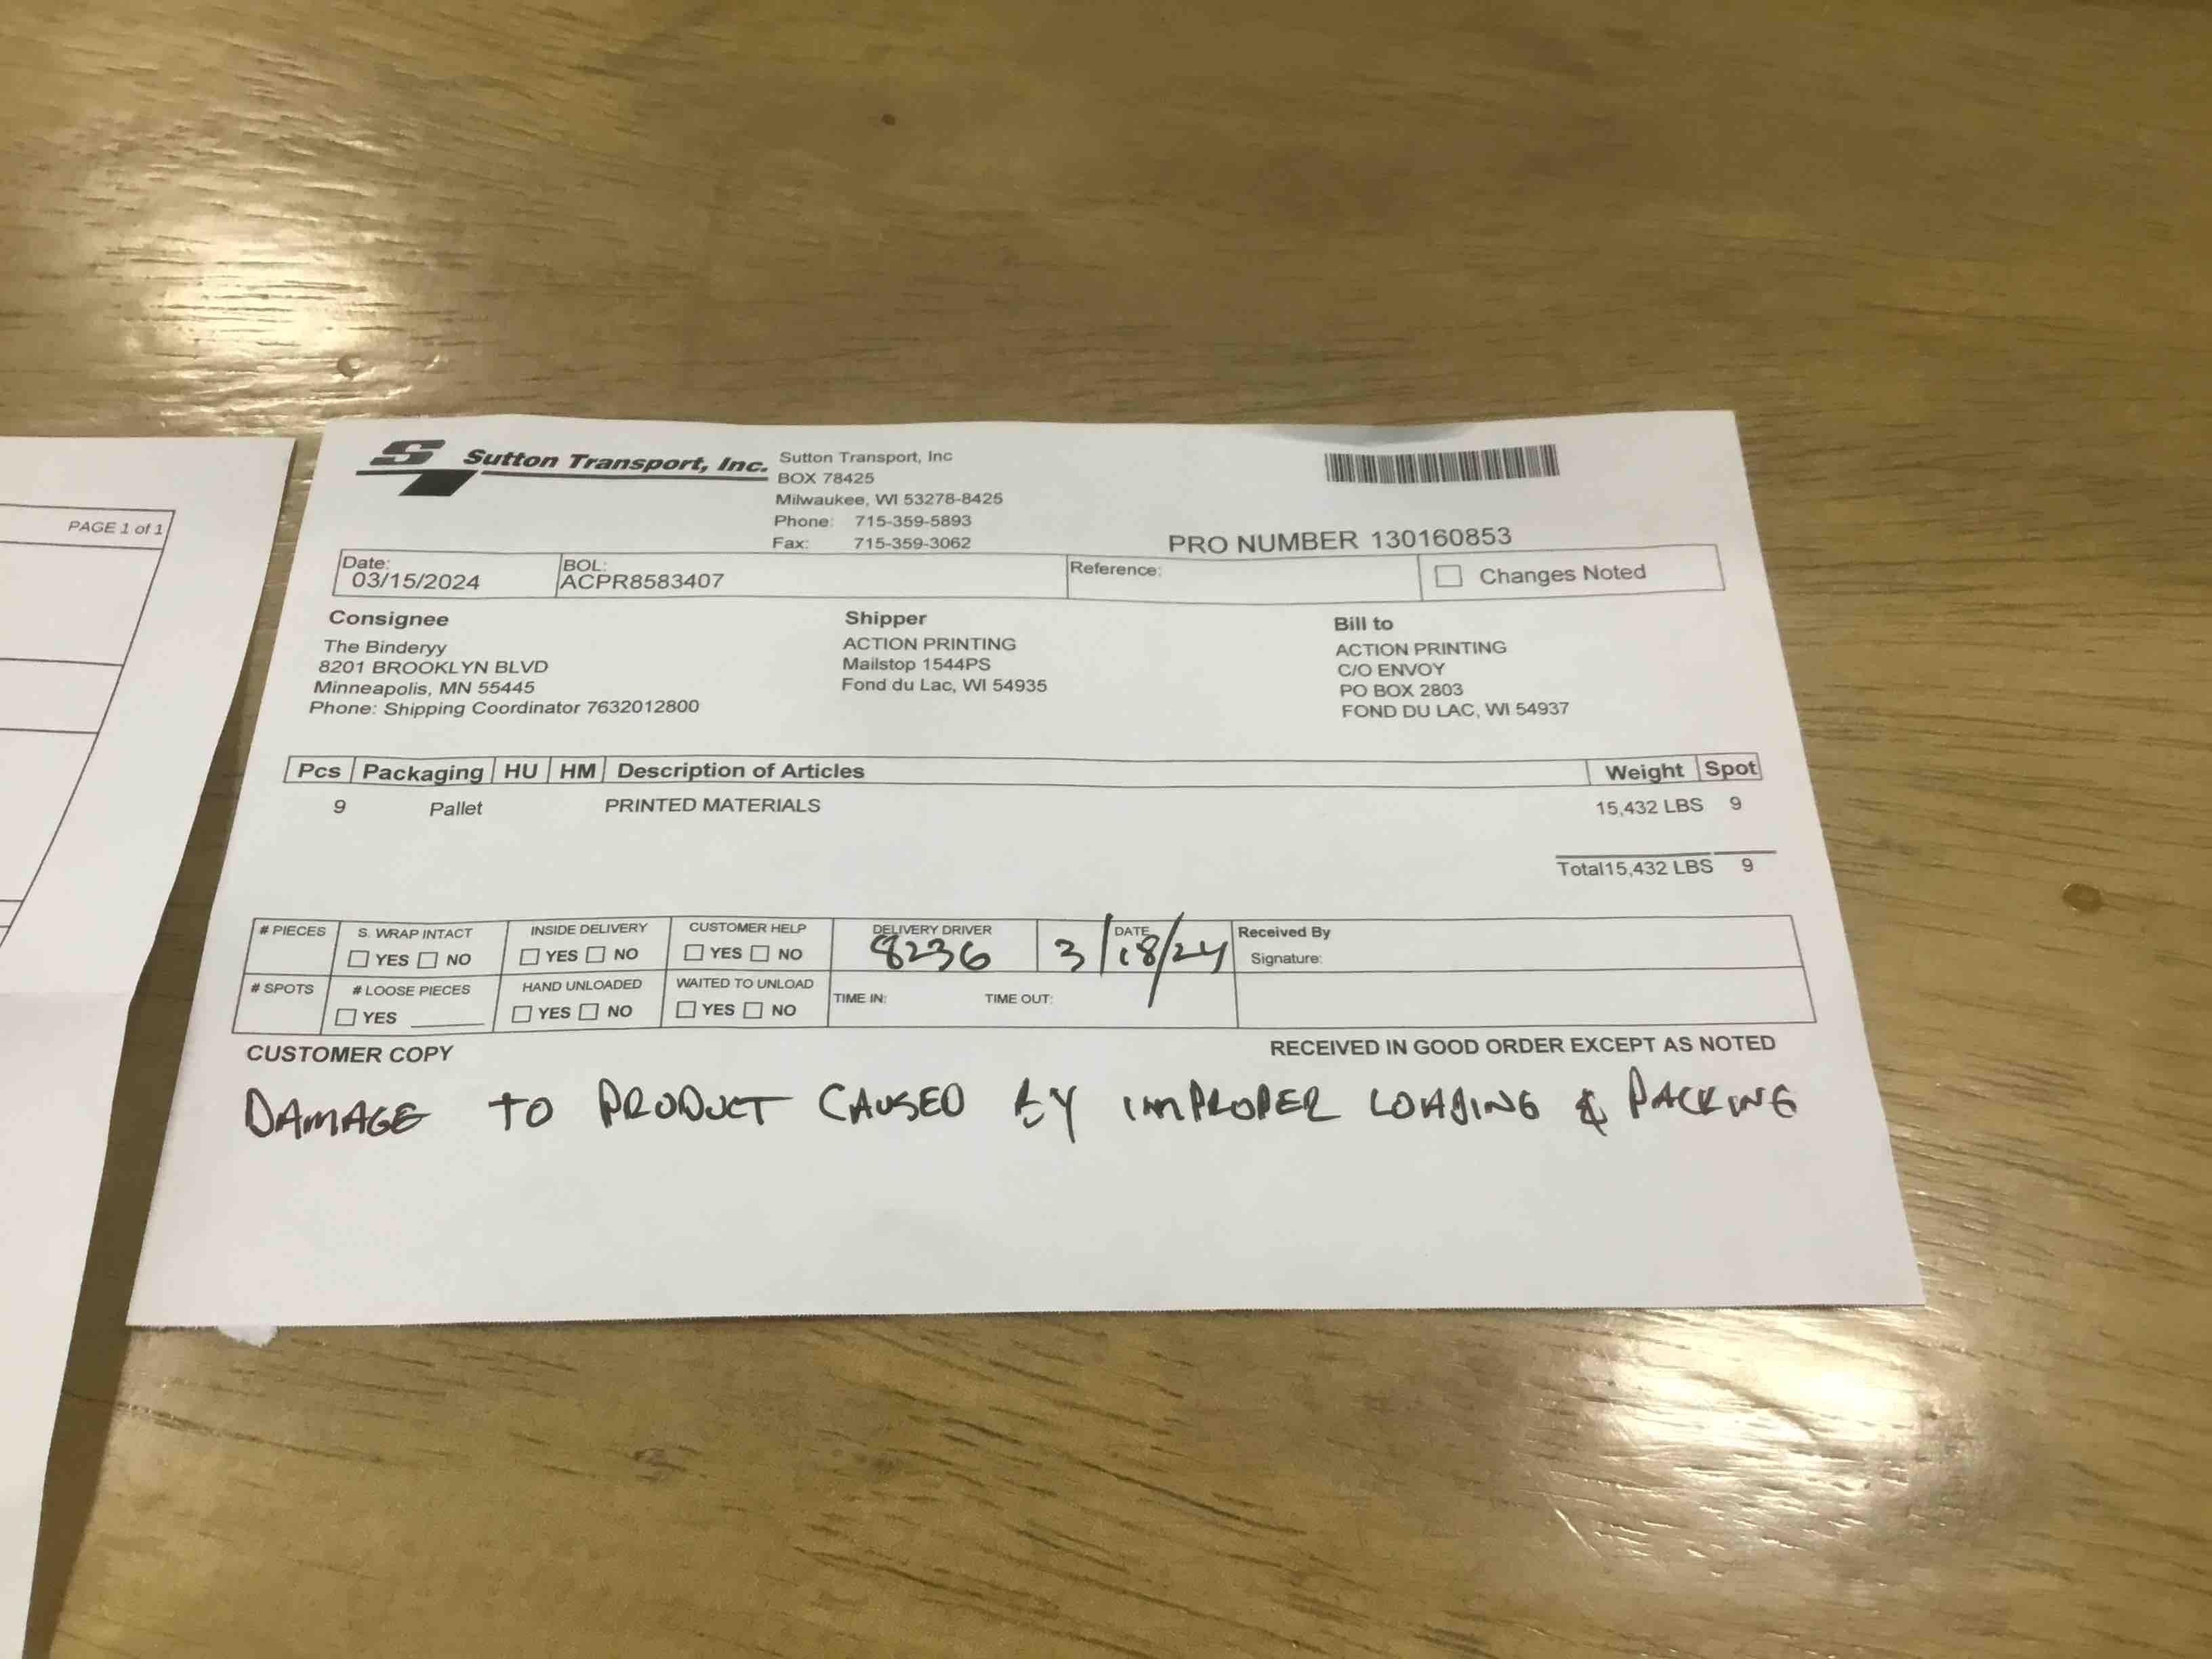 PAGE 1 of 1
Sutton Transport, Inc.
Sutton Transport, Inc
BOX 78425
Milwaukee, WI 53278-8425
Phone: 715-359-5893
Fax: 715-359-3062
PRO NUMBER 130160853
Date: 03/15/2024
BOL: ACPR8583407
Reference:
Changes Noted
Consignee
The Binderyy
8201 BROOKLYN BLVD
Minneapolis, MN 55445
Phone: Shipping Coordinator 7632012800
Shipper
ACTION PRINTING
Mailstop 1544PS
Fond du Lac, WI 54935
Bill to
ACTION PRINTING
C/O ENVOY
PO BOX 2803
FOND DU LAC, WI 54937
Pcs Packaging HU HM Description of Articles Weight Spot
9 Pallet PRINTED MATERIALS 15,432 LBS 9
Total 15,432 LBS 9
# PIECES
S. WRAP INTACT
YES NO
INSIDE DELIVERY
YES NO
CUSTOMER HELP
YES NO
DELIVERY DRIVER
8236
DATE
3/18/24
Received By
Signature:
# SPOTS
# LOOSE PIECES
YES
HAND UNLOADED
YES NO
WAITED TO UNLOAD
YES NO
TIME IN: TIME OUT:
CUSTOMER COPY
RECEIVED IN GOOD ORDER EXCEPT AS NOTED
DAMAGE TO PRODUCT CAUSED BY IMPROPER LOADING & PACKING